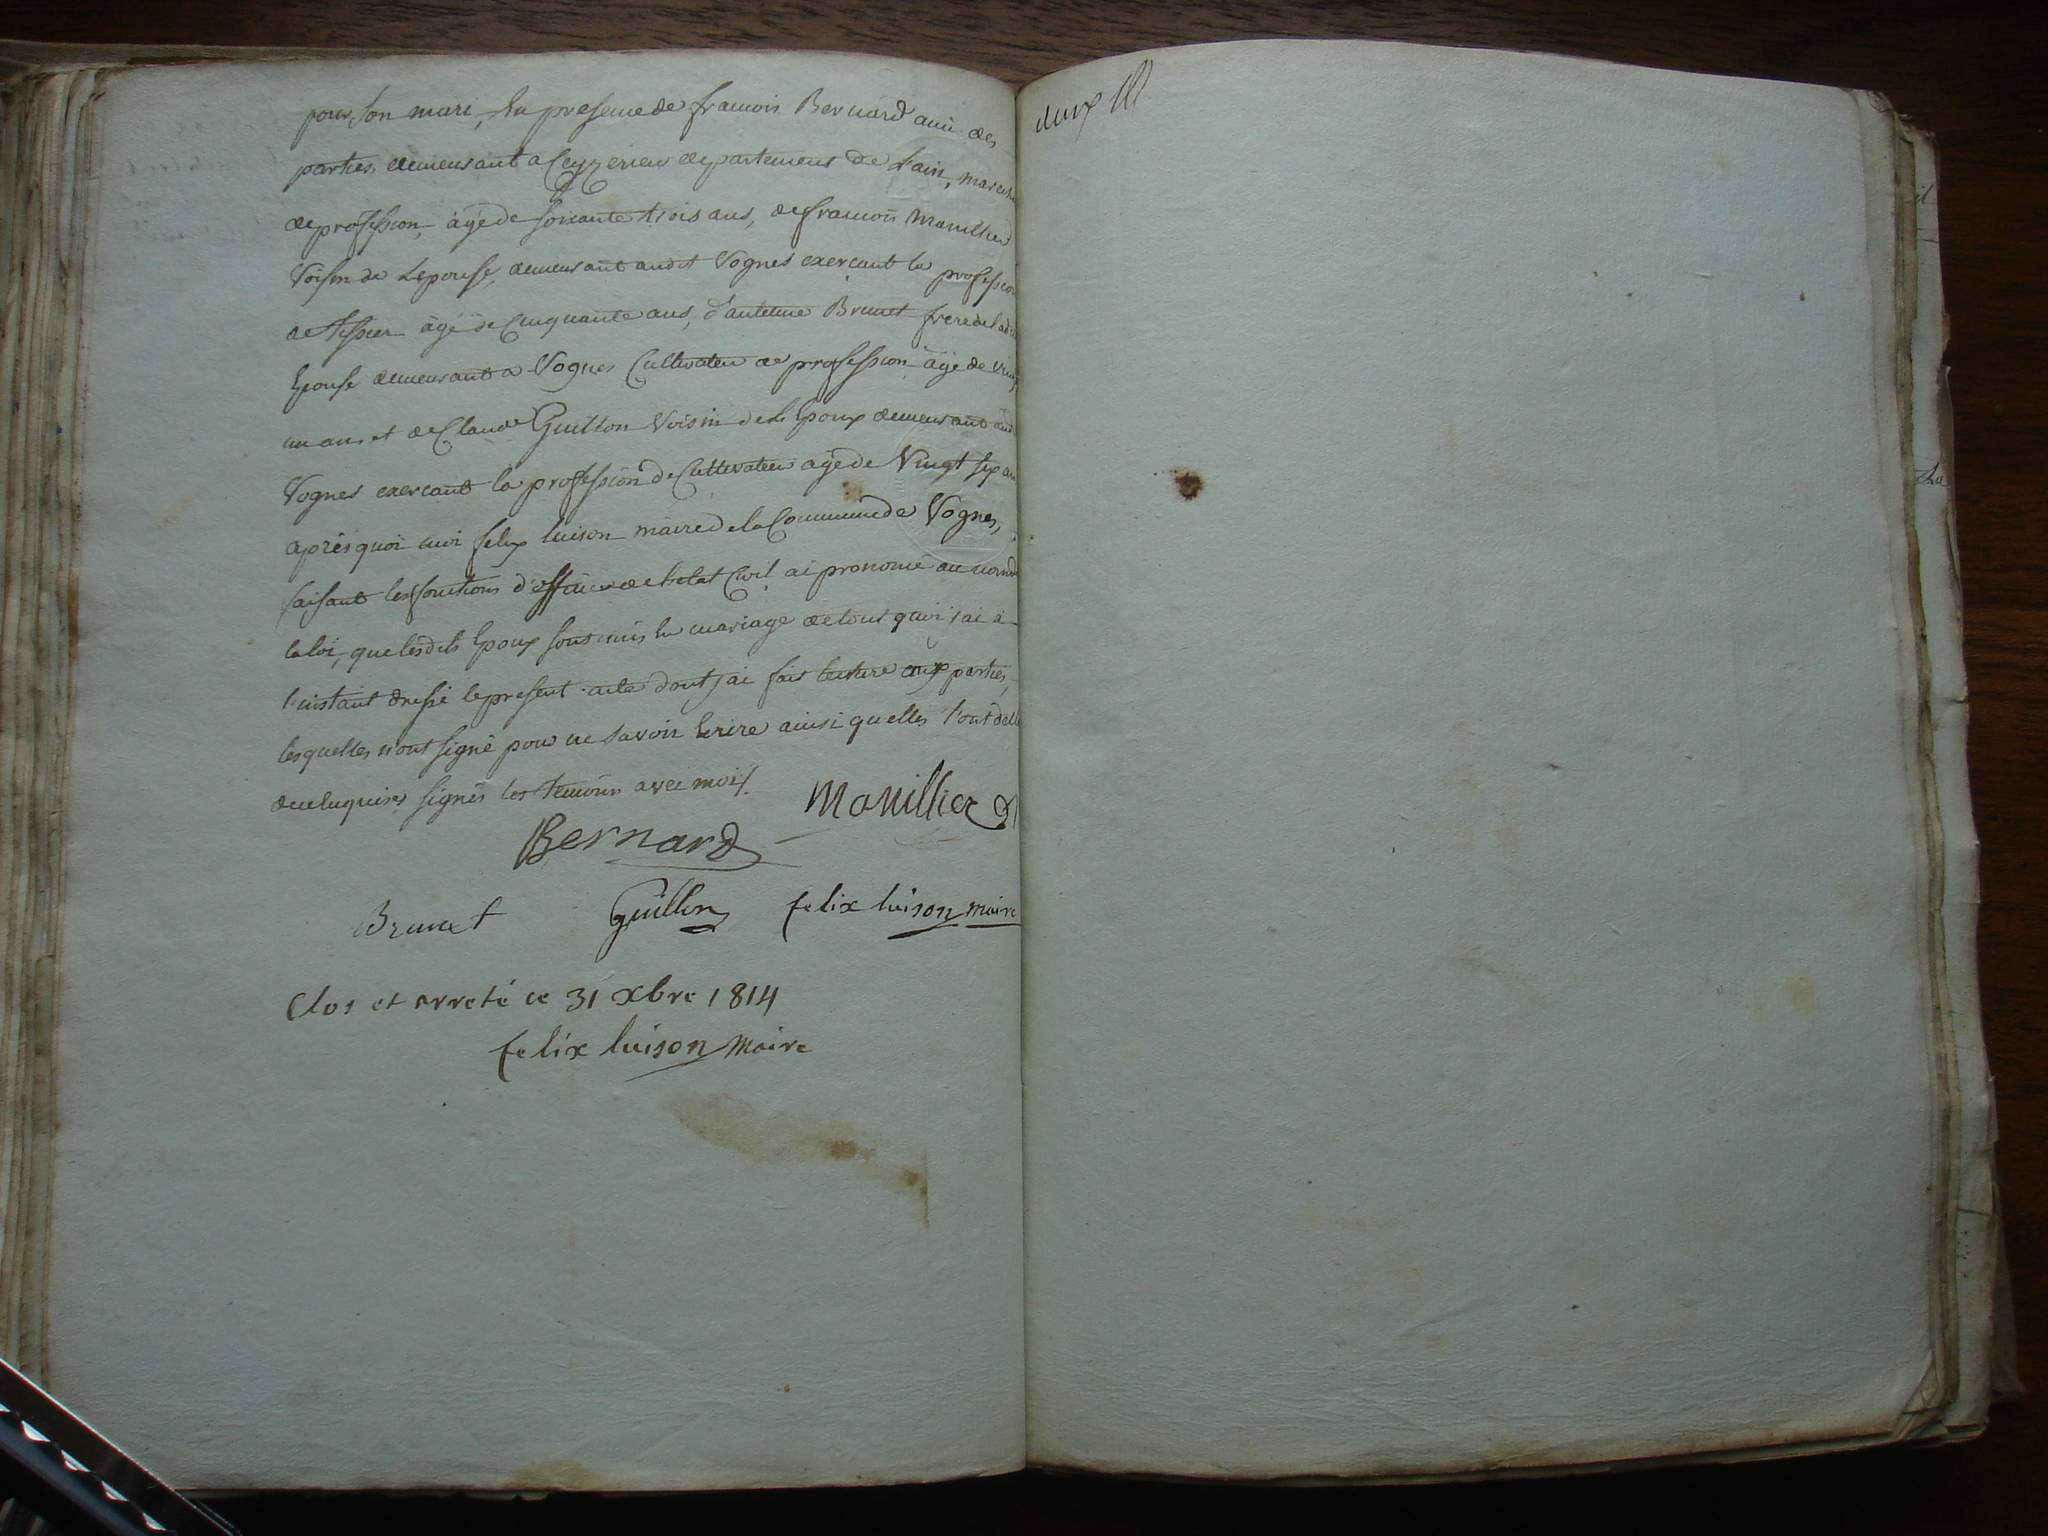 pour son mari, En presence de francois Bernard ami des
parties, demeurant a Ceyzerieu departement de L'ain, march
de profession, âgé de soixante trois ans, de francois Manillier
Voisin de L'epouse, demeurant audit Vognes exercant la profession
de tissier âgé de Cinquante ans, d'antoine Brunet frere de lad
Epouse demeurant a Vognes Cultivateur de profession âgé de vingt
un ans et de Claude Guillon Voisin de L'Epoux demeurant aud
Vognes exercant la profession de Cultivateur âgé de Vingt six an
après quoi moi felix luison maire de la Commune de Vognes,
faisant les fonctions d'officier de l'etat Civil ai prononcé au nom de
la loi, que lesdits Epoux sont unis En mariage de tout quoi j'ai à
l'instant dressé le present acte dont j'ai fait lecture aux parties,
lesquelles n'ont signé pour ne savoir Ecrire ainsi quelles l'ont
de ce Enquises signés les temoins avec moi.
Manillier
Bernard
Brunet Guillon felix luison maire
Clos et arreté ce 31 xbre 1814
felix luison maire